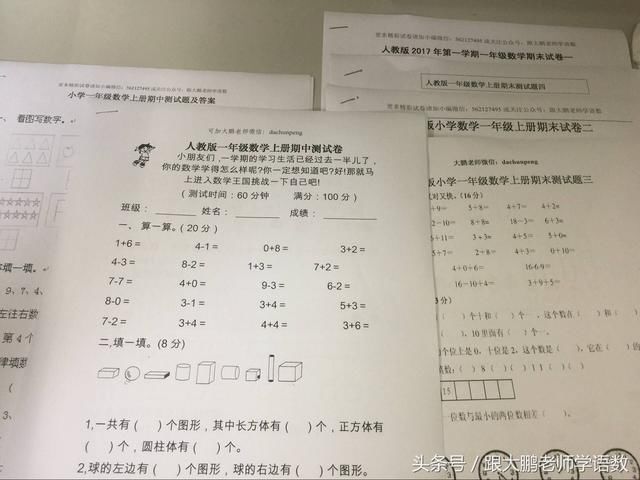 更多精彩试卷请加小编微信：562127495 或关注公众号：跟大鹏老师学语数
人教版 2017 年第一学期一年级数学期末试卷一
人教版一年级数学上册期末测试题四
更多精彩试卷请加小编微信：562127495 或关注公众号：跟大鹏老师学语数
版小学数学一年级上册期末试卷二
大鹏老师微信：dachunpeng
版小学一年级数学上册期末测试题三
又对又快。(16 分)
+9= 5+8= 4+7= 4+2=
2-10= 8+8= 18-3= 6+3=
6+11= 3+3= 4+5= 5+0=
5+7= 2+8= 4+3= 0+10=
4+0+6= 16-6-9=
16-10+4= 3+9+5=
3 分)
( )个十和( )个一，这个数在( )和(
)，10里面有( )个一。
个位上是 0，十位是 2，这个数是( )，它在(
( ) 8 ( ) ( ) 11 ( ) ( )
15
一位数与最小的两位数相差( )。
更多精彩试卷请加小编微信：562127495 或关注公众号：跟大鹏老师学语数
小学一年级数学上册期中测试题及答案
、 看图写数字。
填一填。
9、7、4、
左往右数
第 4 个
律填数
3、
可加大鹏老师微信：dachunpeng
人教版一年级数学上册期中测试卷
小朋友们，一学期的学习生活已经过去一半儿了，
你的数学学得怎么样呢?你一定想知道吧?好!那就马
上进入数学王国挑战一下自己吧!
(测试时间：60 分钟 满分：100 分)
班级： 姓名： 成绩：
一、 算一算。(20 分)
1+6= 4-1= 0+8= 3+2=
4-3= 8-2= 1+3= 7+2=
7-7= 4+0= 9-3= 6-2=
8-0= 3-1= 3+4= 5+3=
7-2= 3+4= 4+4= 3+6=
二,填一填。(8 分)
1,一共有( )个图形，其中长方体有( )个，正方体有
( )个，圆柱体有( )个。
2,球的左边有( )个图形，球的右边有( )个图形。
头条号 / 跟大鹏老师学语数